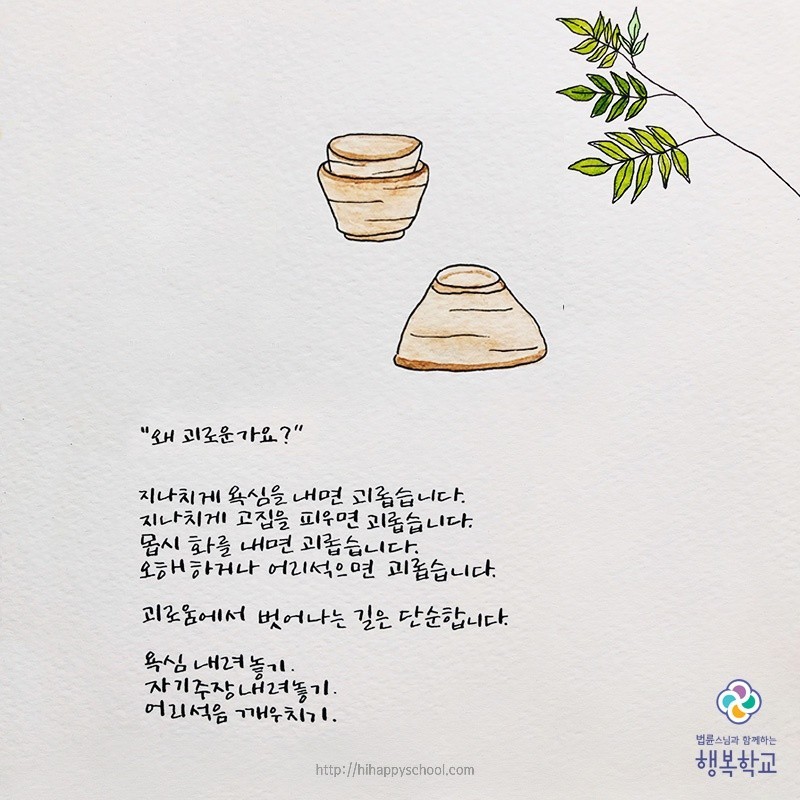 "왜 괴로운가요?"
지나치게 욕심을 내면 괴롭습니다.
지나치게 고집을 피우면 괴롭습니다.
몹시 화를 내면 괴롭습니다.
오해하거나 어리석으면 괴롭습니다.
괴로움에서 벗어나는 길은 단순합니다.
욕심 내려놓기.
자기주장 내려놓기.
어리석음 깨우치기.
법륜스님과 함께하는
행복학교
http://hihappyschool.com